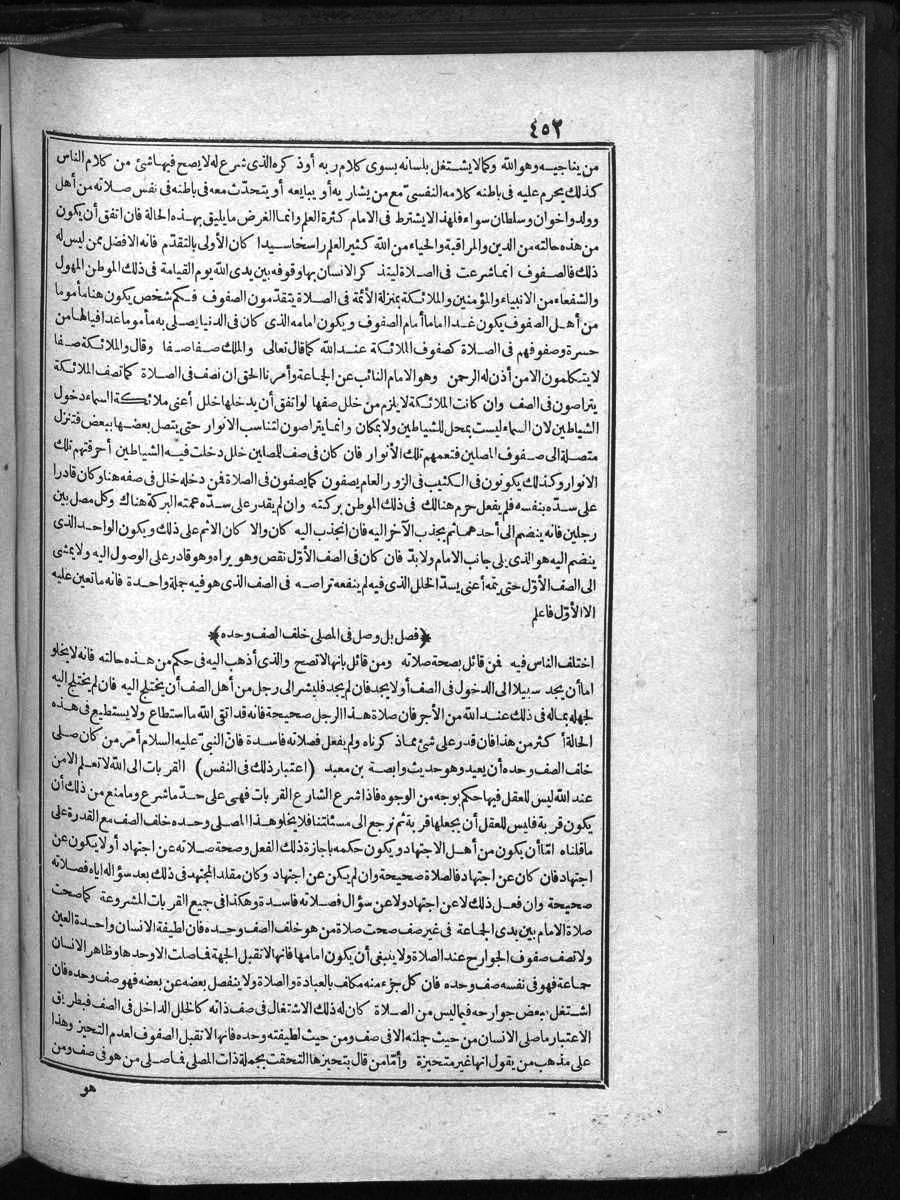 ٤٥٢
من يناجيه وهو الله وكما لا يشتغل بلسانه بسوى كلام ربه أو ذكره الذى شرع له لا يصح فيها شئ من كلام الناس
كذلك يحرم عليه فى باطنه كلامه النفسىّ مع من يشاربه أو يبايعه أو يتحدّث معه فى باطنه فى نفس صلاته من أهل
وولد واخوان وسلطان سواء فلهذا لا يشترط فى الامام كثرة العلم وانما الغرض ما يليق بهذه الحالة فان اتفق أن يكون
من هذه حالته من الدين والمراقبة والحياء من الله كثير العلم راسخا سيدا كان الأولى بالتقدّم فانه الافضل ممن ليس له
ذلك فالصفوف انما شرعت فى الصلاة ليتذكر الانسان بها وقوفه بين يدى الله يوم القيامة فى ذلك الموطن المهول
والشفعاء من الانبياء والمؤمنين والملائكة بمنزلة الأئمة فى الصلاة يتقدّمون الصفوف فكم شخص يكون هنا مأموما
من أهل الصفوف يكون غدا اماما أمام الصفوف ويكون امامه الذى كان فى الدنيا يصلى به مأموما غدا فيا لها من
حسرة وصفوفهم فى الصلاة كصفوف الملائكة عند الله كما قال تعالى والملك صفا صفا وقال والملائكة صفا
لا يتكلمون الا من أذن له الرحمن وهو الامام النائب عن الجماعة وأمرنا الحق ان نصف فى الصلاة كما تصف الملائكة
يتراصون فى الصف وان كانت الملائكة لا يلزم من خلل صفها لو اتفق أن يدخلها خلل أعنى ملائكة السماء دخول
الشياطين لان السماء ليست بمحل للشياطين ولا بمكان وانما يتراصون لتناسب الانوار حتى يتصل بعضها ببعض فتنزل
متصلة الى صفوف المصلين فتعمهم تلك الأنوار فان كان فى صف المصلين خلل دخلت فيه الشياطين أحرقتهم تلك
الانوار وكذلك يكونون فى الكثيب فى الزور العام يصفون كما يصفون فى الصلاة فمن دخله خلل فى صفه هنا وكان قادرا
على سدّه بنفسه فلم يفعل حرم هنالك فى ذلك الموطن بركته وان لم يقدر على سدّه عمته البركة هناك وكل مصل بين
رجلين فانه ينضم الى أحدهما ثم يجذب الآخر اليه فان انجذب اليه كان والا كان الاثم على ذلك ويكون الواحد الذى
ينضم اليه هو الذى يلى جانب الامام ولا بدّ فان كان فى الصف الأوّل نقص وهو يراه وهو قادر على الوصول اليه ولا يمشى
الى الصف الأوّل حتى يتمه أعنى يسدّ الخلل الذى فيه لم ينفعه تراصه فى الصف الذى هو فيه جملة واحدة فانه ما تعين عليه
الا الأوّل فاعلم
﴿فصل بل وصل فى المصلى خلف الصف وحده﴾
اختلف الناس فيه فمن قائل بصحة صلاته ومن قائل بانها لا تصح والذى أذهب اليه فى حكم من هذه حالته فانه لا يخلو
اما أن يجد سبيلا الى الدخول فى الصف أو لا يجد فان لم يجد فليشر الى رجل من أهل الصف أن يختلج اليه فان لم يختلج اليه
لجهله بما له فى ذلك عند الله من الأجر فان صلاة هذا الرجل صحيحة فانه قد اتقى الله ما استطاع ولا يستطيع فى هذه
الحالة أكثر من هذا فان قدر على شئ مما ذكرناه ولم يفعل فصلاته فاسدة فانّ النبىّ عليه السلام أمر من كان صلى
خلف الصف وحده أن يعيد وهو حديث وابصة بن معبد (اعتبار ذلك فى النفس) القربات الى الله لا تعلم الا من
عند الله ليس للعقل فيها حكم بوجه من الوجوه فاذا شرع الشارع القربات فهى على حدّ ما شرع وما منع من ذلك أن
يكون قربة فليس للعقل أن يجعلها قربة ثم نرجع الى مسئلتنا فلا يخلو هذا المصلى وحده خلف الصف مع القدرة على
ما قلناه امّا أن يكون من أهل الاجتهاد ويكون حكمه باجازة ذلك الفعل وصحة صلاته عن اجتهاد أو لا يكون عن
اجتهاد فان كان عن اجتهاد فالصلاة صحيحة وان لم يكن عن اجتهاد وكان مقلد المجتهد فى ذلك بعد سؤاله اياه فصلاته
صحيحة وان فعل ذلك لا عن اجتهاد ولا عن سؤال فصلاته فاسدة وهكذا فى جميع القربات المشروعة كما صحت
صلاة الامام بين يدى الجماعة فى غير صف صحت صلاة من هو خلف الصف وحده فان لطيفة الانسان واحدة العين
ولا تصف صفوف الجوارح عند الصلاة ولا ينبغى أن يكون امامها فانها لا تقبل الجهة فما صلت الا وحدها وظاهر الانسان
جماعة فهو فى نفسه صف وحده فان كل جزء منه مكلف بالعبادة والصلاة ولا ينفصل بعضه عن بعضه فهو صف وحده فان
اشتغل ببعض جوارحه فيما ليس من الصلاة كان له ذلك الاشتغال فى صف ذاته كالخلل الداخل فى الصف فبطريق
الاعتبار ما صلى الانسان من حيث جملته الا فى صف ومن حيث لطيفته وحده فانها لا تقبل الصفوف لعدم التحيز وهذا
على مذهب من يقول انها غير متحيزة وأمّا من قال بتحيزها التحقت بجملة ذات المصلى فما صلى من هو فى صف ومن
هو